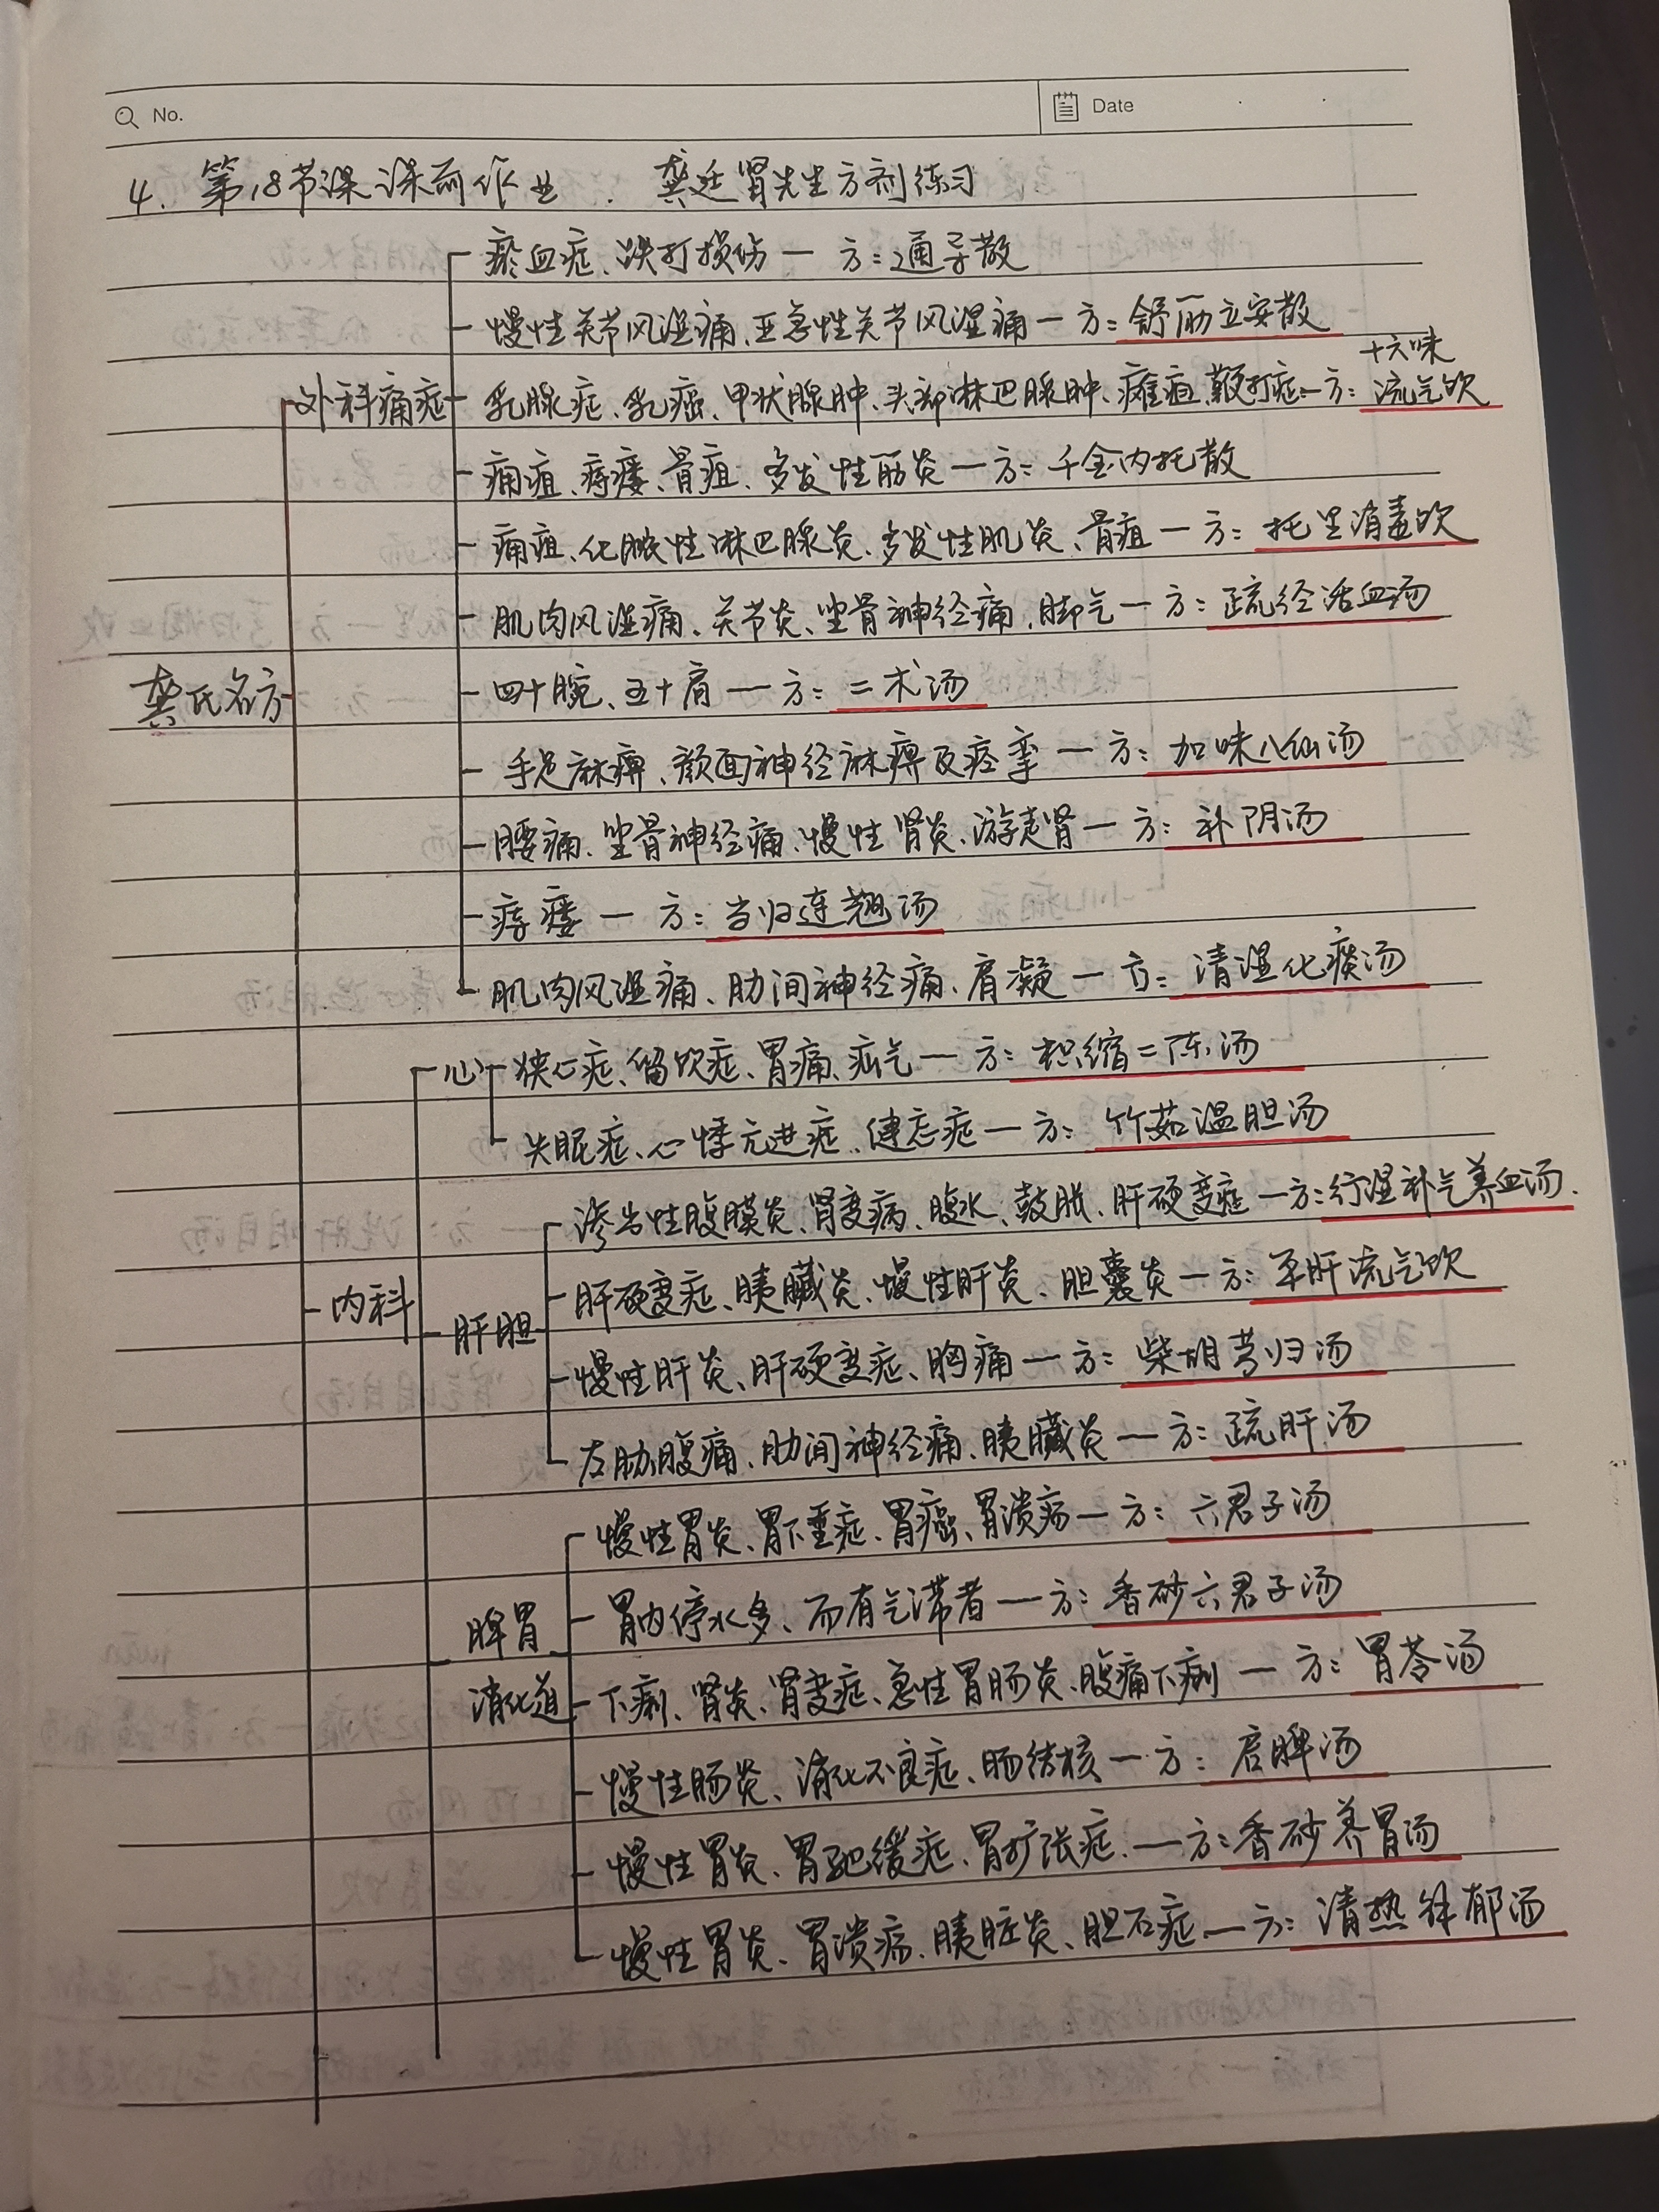 No.
Date
4. 第18节课课前作业. 龚廷贤先生方剂练习
瘀血症、跌打损伤一 方:通导散
慢性关节风湿痛、亚急性关节风湿痛一方:舒筋立安散
十六味
外科痛症 乳腺症、乳癌、甲状腺肿、头部淋巴腺肿、瘫疽、鞭打症一方:流气饮
痈疽、痔瘘、骨疽、多发性筋炎一方:千金内托散
痈疽、化脓性淋巴腺炎、多发性肌炎、骨疽一方:托里消毒饮
肌肉风湿痛、关节炎、坐骨神经痛、脚气一方:疏经活血汤
龚氏名方 四十腕、五十肩一方:二术汤
手足麻痹、颜面神经麻痹及痉挛一方:加味八仙汤
腰痛、坐骨神经痛、慢性肾炎、游走肾一方:补阴汤
痔瘘一 方:当归连翘汤
肌肉风湿痛、肋间神经痛、肩凝一方:清湿化痰汤
心 狭心症、留饮症、胃痛、疝气一方:枳缩二陈汤
失眠症、心悸亢进症、健忘症一方:竹茹温胆汤
渗出性腹膜炎、肾变病、腹水、鼓胀、肝硬变症一方:行湿补气养血汤.
内科 肝硬变症、胰臓炎、慢性肝炎、胆囊炎一方:平肝流气饮
肝胆 慢性肝炎、肝硬变症、胸痛一方:柴胡芎归汤
左肋腹痛、肋间神经痛、胰臓炎一方:疏肝汤
慢性胃炎、胃下垂症、胃癌、胃溃疡一方:六君子汤
脾胃 胃内停水多、而有气滞者一方:香砂六君子汤
消化道 下痢、肾炎、肾变症、急性胃肠炎、腹痛下痢一 方:胃苓汤
慢性肠炎、消化不良症、肠结核一方:启脾汤
慢性胃炎、胃弛缓症、胃扩张症.一方:香砂养胃汤
慢性胃炎、胃溃疡、胰脏炎、胆石症.一方:清热解郁汤